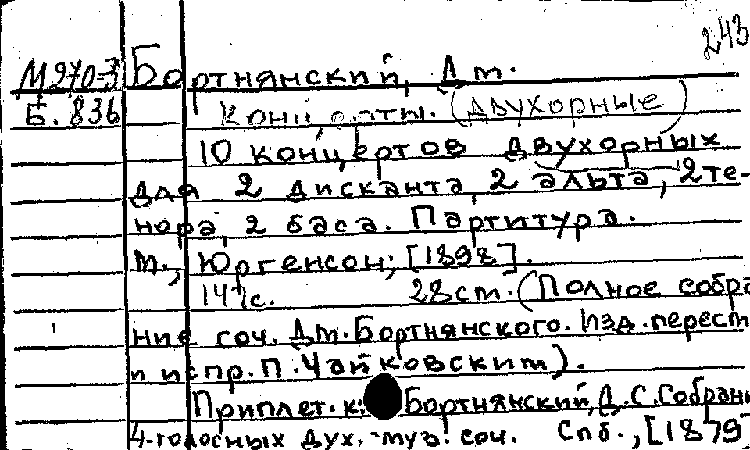 243
М270-3 Бортнянский, Дм.
Б. 836 Концерты. (двухорные)
10 концертов двухорных
для 2 дисканта, 2 альта, 2 те-
нора, 2 баса. Партитура.
М., Юргенсон; [1898].
141с. 28 см. (Полное собра
ние соч. Дм. Бортнянского. Изд. перест
и испр. П. Чайковским).
Приплет. к: Бортнянский, Д.С. Собрани
4-голосных дух.-муз. соч. Спб., [1879